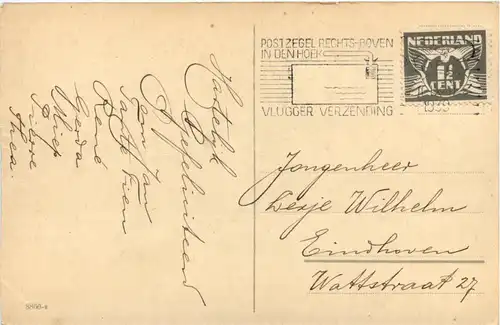 Hartelijk
Gefeliciteerd
Oom Jan
Tante Fien
René
Gerda
Wiep
Pierre
Thea.
POSTZEGEL RECHTS-BOVEN
IN DEN HOEK
VLUGGER VERZENDING
NEDERLAND
1½
CENT
Jongenheer
Wilhelm
Eindhoven
Wattstraat 27